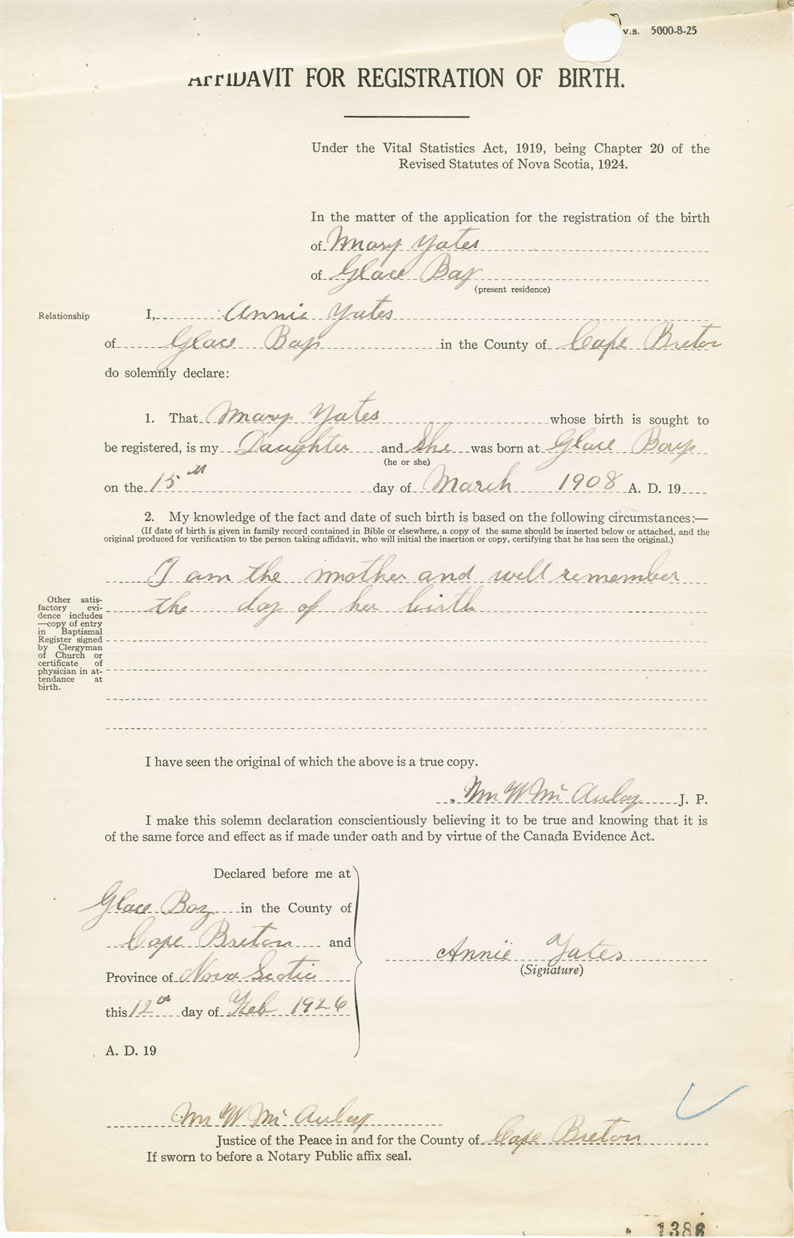 v.s. 5000-8-25
AFFIDAVIT FOR REGISTRATION OF BIRTH.
Under the Vital Statistics Act, 1919, being Chapter 20 of the
Revised Statutes of Nova Scotia, 1924.
In the matter of the application for the registration of the birth
of Mary Yates
of Glace Bay
(present residence)
Relationship I, Annie Yates
of Glace Bay in the County of Cape Breton
do solemnly declare:
1. That Mary Yates whose birth is sought to
be registered, is my Daughter and She was born at Glace Bay
(he or she)
on the 15th day of March 1908 A. D. 19
2. My knowledge of the fact and date of such birth is based on the following circumstances:—
(If date of birth is given in family record contained in Bible or elsewhere, a copy of the same should be inserted below or attached, and the
original produced for verification to the person taking affidavit, who will initial the insertion or copy, certifying that he has seen the original.)
I am the mother and will remember
the day of her birth
Other satis-
factory evi-
dence includes
—copy of entry
in Baptismal
Register signed
by Clergyman
of Church or
certificate of
physician in at-
tendance at
birth.
I have seen the original of which the above is a true copy.
Mc Aulay J. P.
I make this solemn declaration conscientiously believing it to be true and knowing that it is
of the same force and effect as if made under oath and by virtue of the Canada Evidence Act.
Declared before me at
Glace Bay in the County of
Cape Breton and
Province of Nova Scotia
this 12th day of Feb 1926
A. D. 19
Annie Yates
(Signature)
Mc Aulay
Justice of the Peace in and for the County of Cape Breton
If sworn to before a Notary Public affix seal.
1386